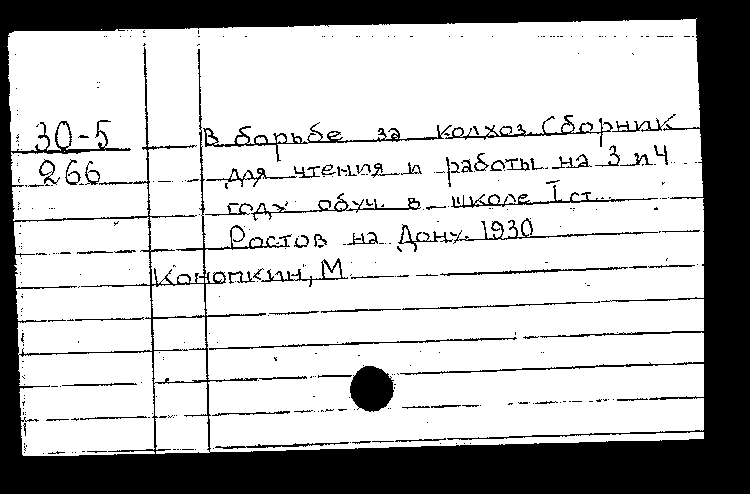 30-5
266
В борьбе за колхоз. Сборник
для чтения и работы на 3 и 4
году обуч. в школе I ст.
Ростов на Дону. 1930
Конопкин, М